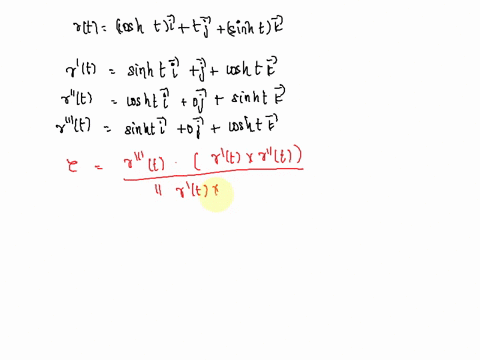 r(t) = (cosh t) i⃗ + t j⃗ + (sinh t) k⃗
r'(t) = sinh t i⃗ + j⃗ + cosh t k⃗
r''(t) = cosh t i⃗ + 0 j⃗ + sinh t k⃗
r'''(t) = sinh t i⃗ + 0 j⃗ + cosh t k⃗
τ = r'''(t) · ( r'(t) × r''(t))
|| r'(t) ×